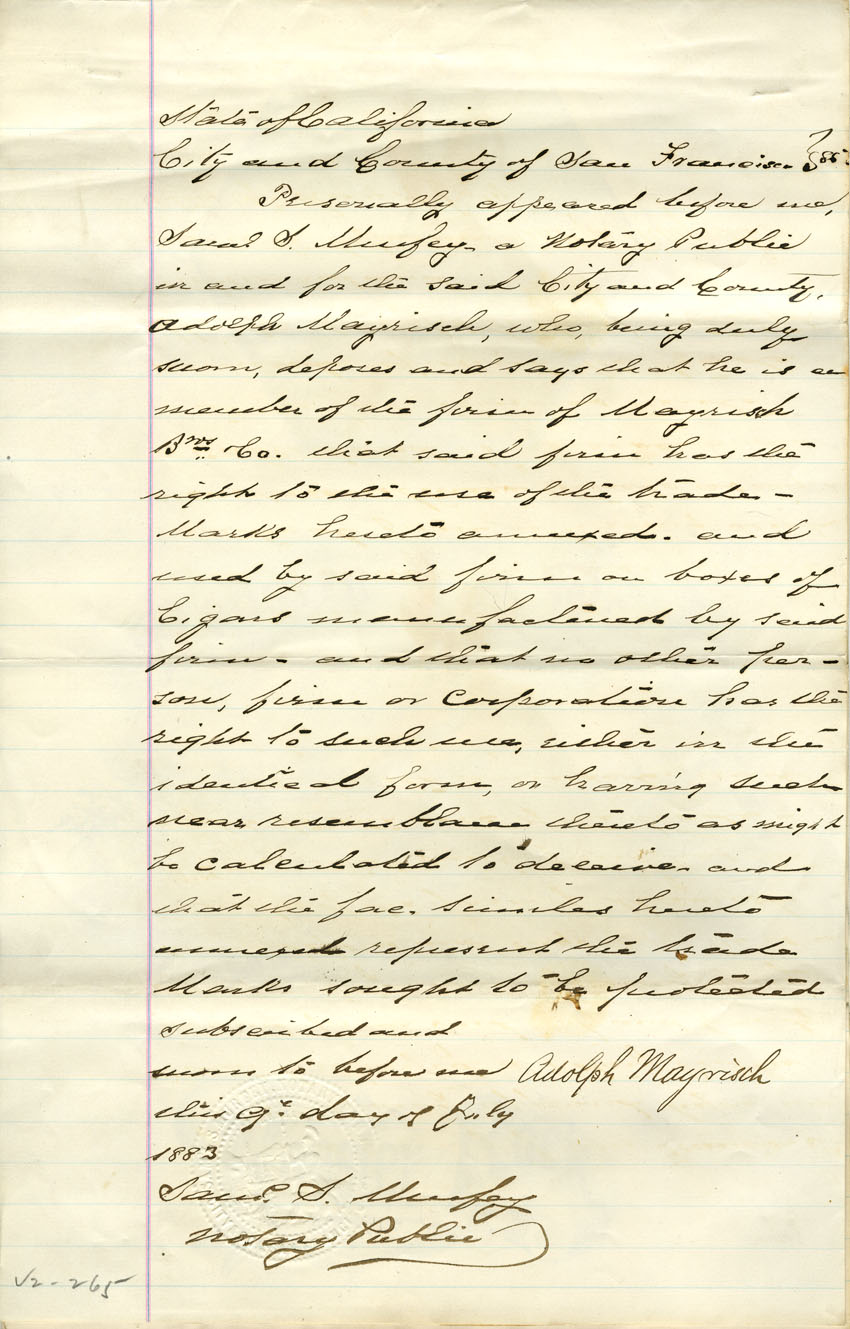 State of California
City and County of San Francisco } ss.
Personally appeared before me,
Saml. S. Murfey a Notary Public
in and for the said City and County,
Adolph Mayrisch, who, being duly
sworn, deposes and says that he is a
member of the firm of Mayrisch
Bros Co. that said firm has the
right to the use of the trade-
Marks hereto annexed. and
used by said firm on boxes of
Cigars manufactured by said
firm - and that no other per-
son, firm or corporation has the
right to such use, either in the
identical form, or having such
near resemblance thereto as might
be calculated to deceive and
that the fac. similes hereto
annexed represent the trade
Marks sought to be protected
subscribed and
sworn to before me Adolph Mayrisch
this 9th day of July
1883
Saml. S. Murfey
Notary Public
V2-265